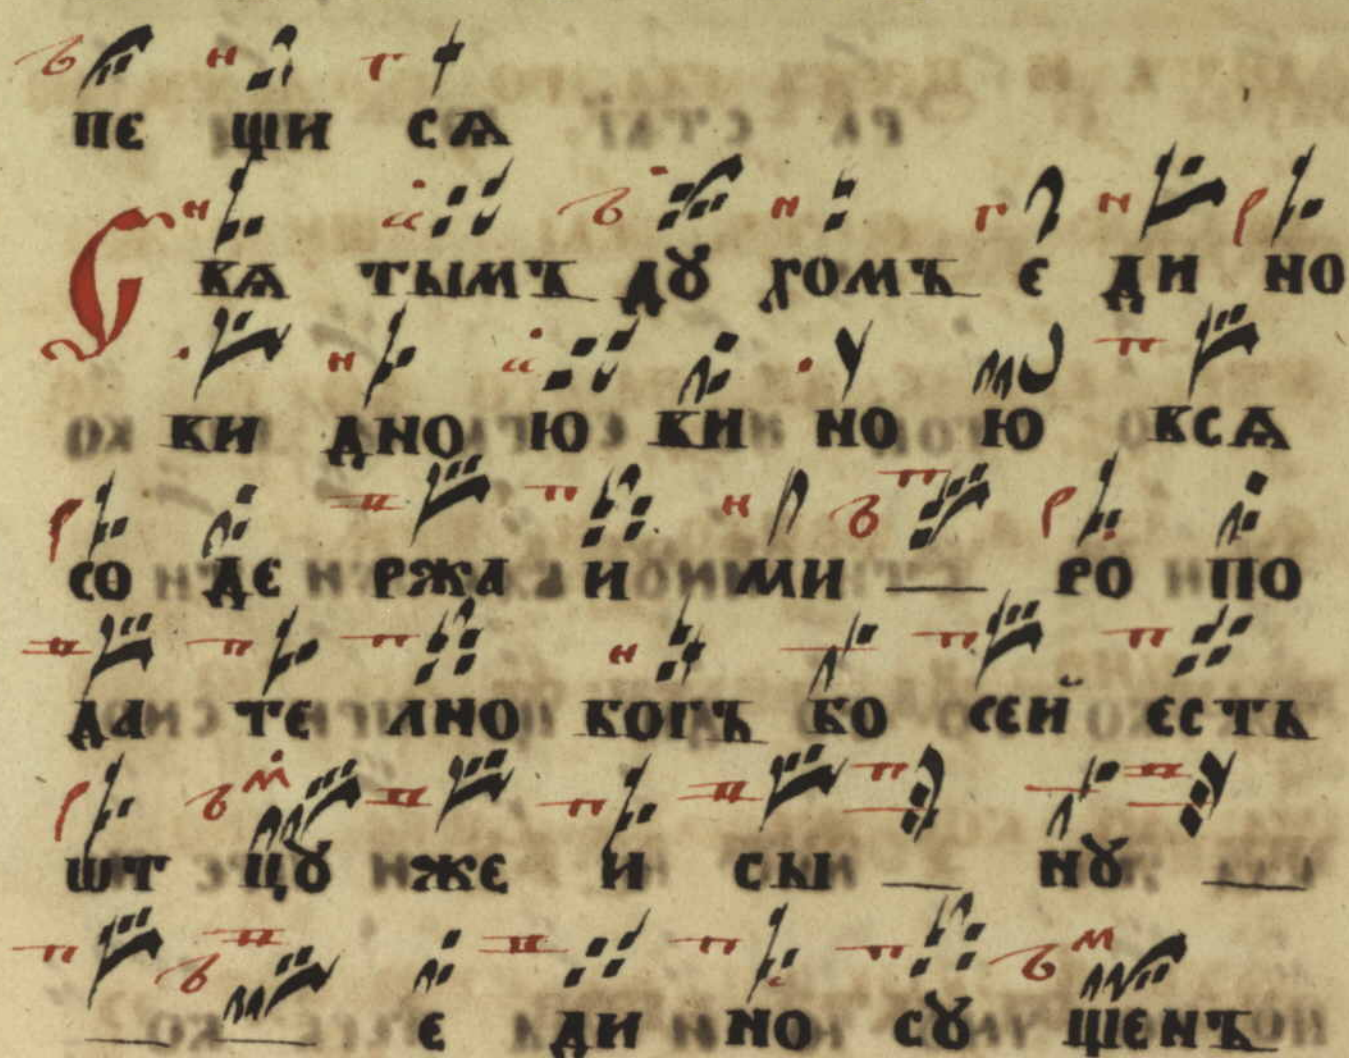 пе щи сѧ
С вѧ тымъ дꙋ хомъ є ди но
ви дно ю ви но ю всѧ
со де ржа и ми — ро по
да те лно богъ бо сей єсть
ѡт цꙋ же и сы — нꙋ —
— — є ди но сꙋ щенъ